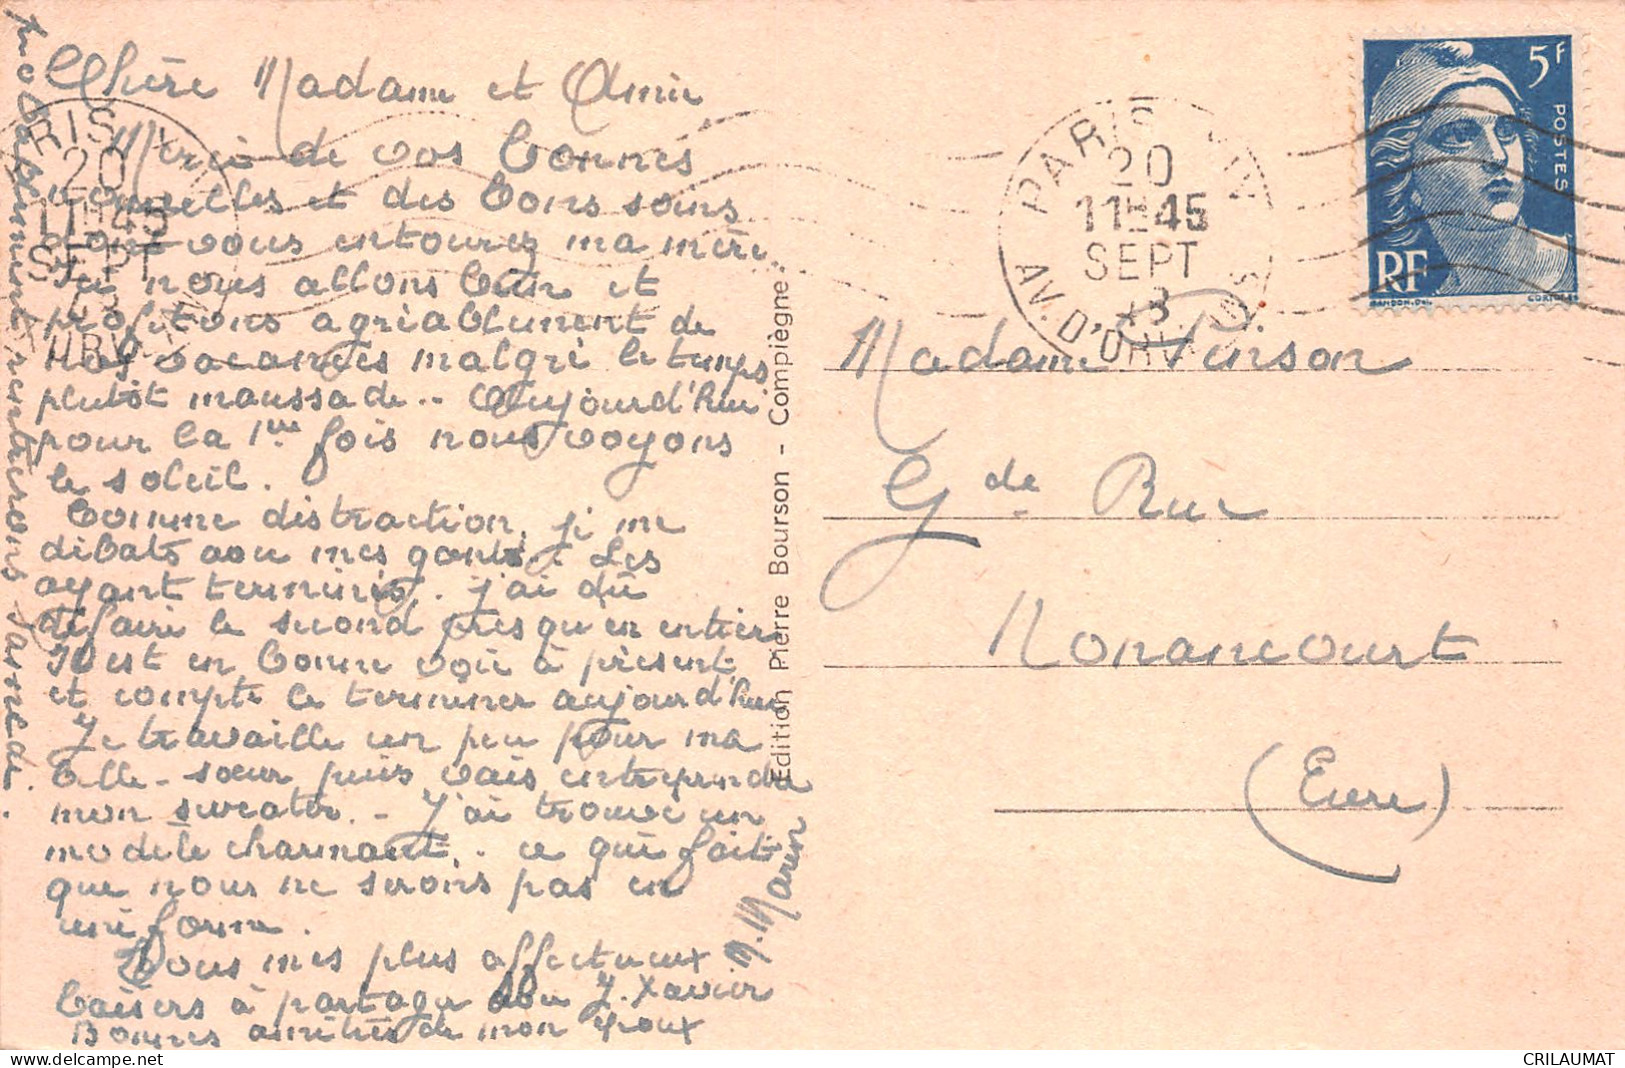 Chère Madame et Amie
Merci de vos bonnes
nouvelles et des bons soins
dont vous entourez ma mère.
Ici nous allons bien et
profitons agréablement de
nos vacances malgré le temps
plutôt maussade.. Aujourd'hui
pour la 1ère fois nous voyons
le soleil.
Comme distraction, je me
débats avec mes gants. Les
ayant terminés, j'ai dû
défaire le second presqu'en entier
Il est en bonne voie à présent
et compte le terminer aujourd'hui
Je travaille un peu pour ma
belle-sœur puis vais entreprendre
mon sweater. - J'ai trouvé un
modèle charmant. ce qui fait
que nous ne serons pas en
uniforme.
Tous mes plus affectueux
baisers à partager avec J. Xavier
Bonnes amitiés de mon époux
rentrerons samedi.
Edition Pierre Bourson - Compiègne
PARIS XIV
20
11H45
SEPT
AV. D'ORLEANS
5F
POSTES
RF
Madame Pinson
Gde Rue
Nonancourt
(Eure)
CRILAUMAT